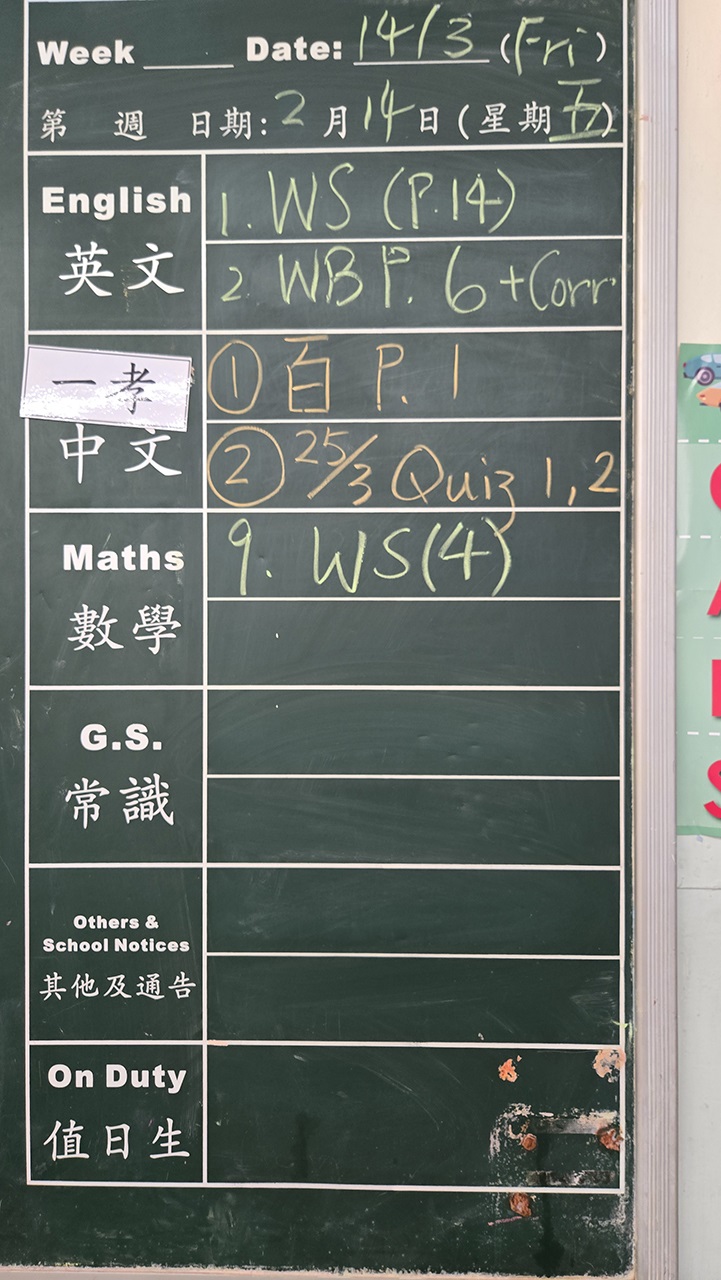 Week ____ Date: 14/3 (Fri)
第 週 日期: 2 月 14 日 (星期五)
English 1. WS (P.14)
英文 2. WB P. 6 + Corr
一孝 ① 百 P. 1
中文 ② 25/3 Quiz 1, 2
Maths 9. WS(4)
數學
G.S.
常識
Others &
School Notices
其他及通告
On Duty
值日生